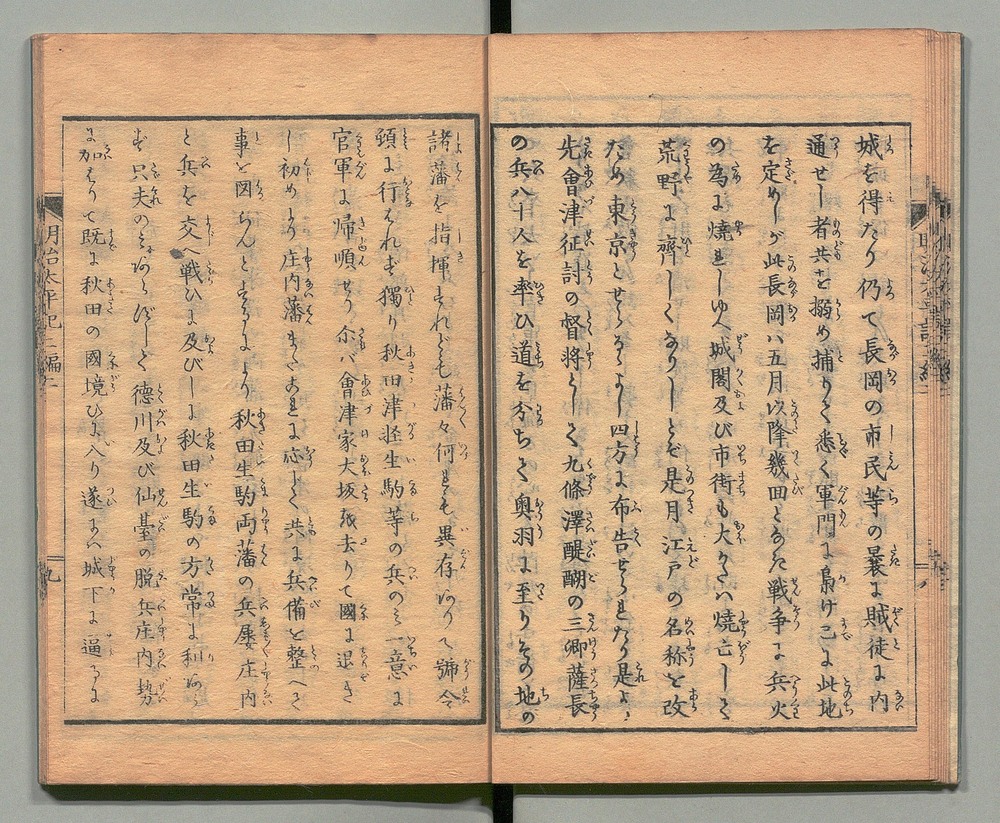 城を得たり仍て長岡の市民等の曩に賊徒に内
通せし者共を搦め捕りて悉く軍門に梟けこゝに此地
を定めしが此長岡ハ五月以降幾回となき戦争に兵火
の為に焼れしゆへ城閣及び市街も大かたハ焼亡しして
荒野に齊しくなりしとぞ是月江戸の名称を改
ため東京とせらるゝよし四方に布告せられたり是より
先會津征討の督将として九條澤醍醐の三卿薩長
の兵八十人を率ひ道を分ちて奥羽に至りその地の
諸藩を指揮すれども藩々何れも異存ありて號令
頭に行はれず獨り秋田津軽生駒等の兵のミ一意に
官軍に帰順せり尓バ會津家大坂を去りて國に退き
し初めより庄内藩もまたこれに応じて共に兵備を整へて
事を図らんとするにより秋田生駒両藩の兵屡庄内
と兵を交へ戦ひに及びしに秋田生駒の方常に利あら
ず只夫のミあらずして徳川及び仙臺の脱兵庄内勢
に加はりて既に秋田の國境ひに入り遂にハ城下に逼るに
明治太平記二編二
九